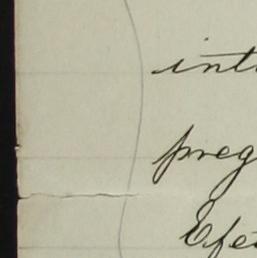 int
preg
Efe